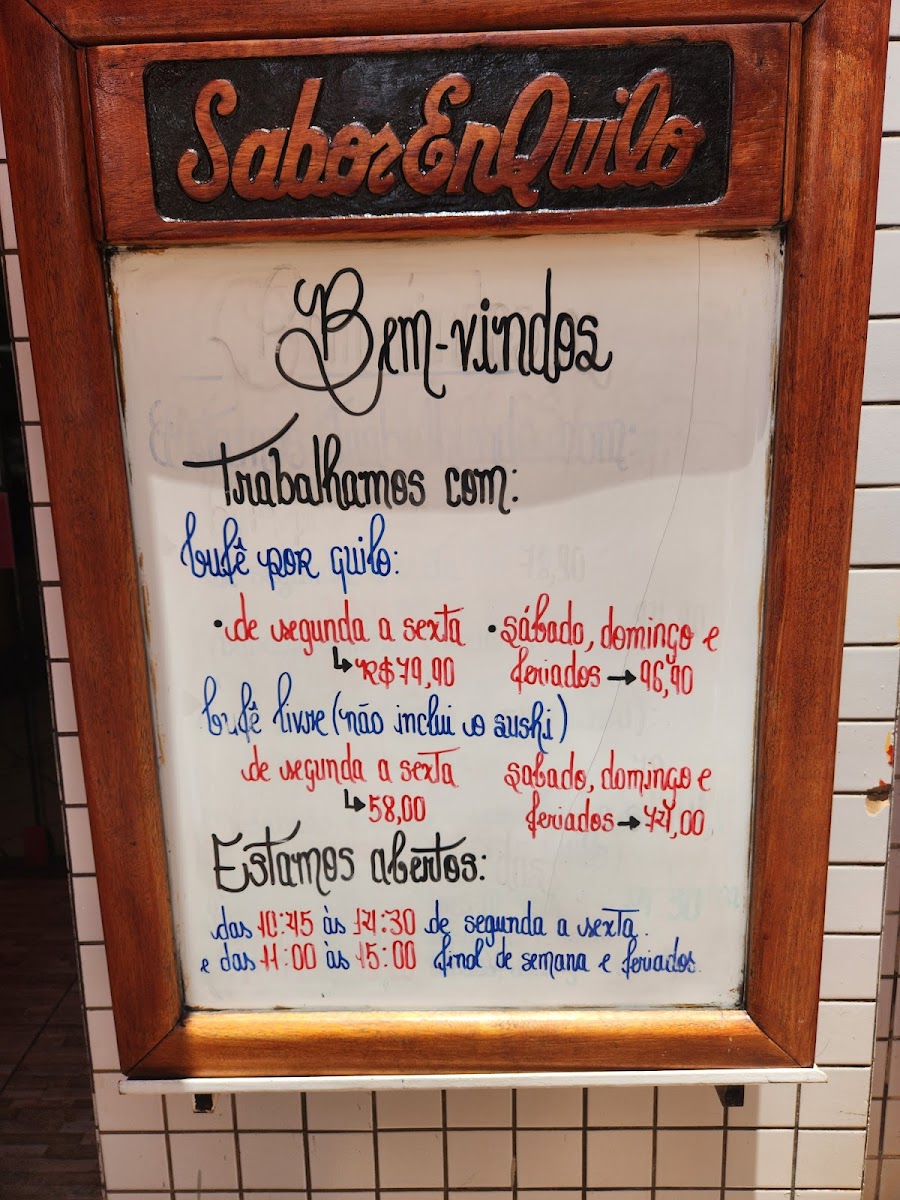 SaborEnQuilo
Bem-vindos
Trabalhamos com:
bufê por quilo:
• de segunda a sexta
↳ R$79,90
• sábado, domingo e
feriados → 96,90
bufê livre (não inclui o sushi)
de segunda a sexta
↳ 58,00
sabado, domingo e
feriados →
Estamos abertos:
das 10:45 às 14:30 de segunda a sexta.
e das 11:00 às 15:00 final de semana e feriados.